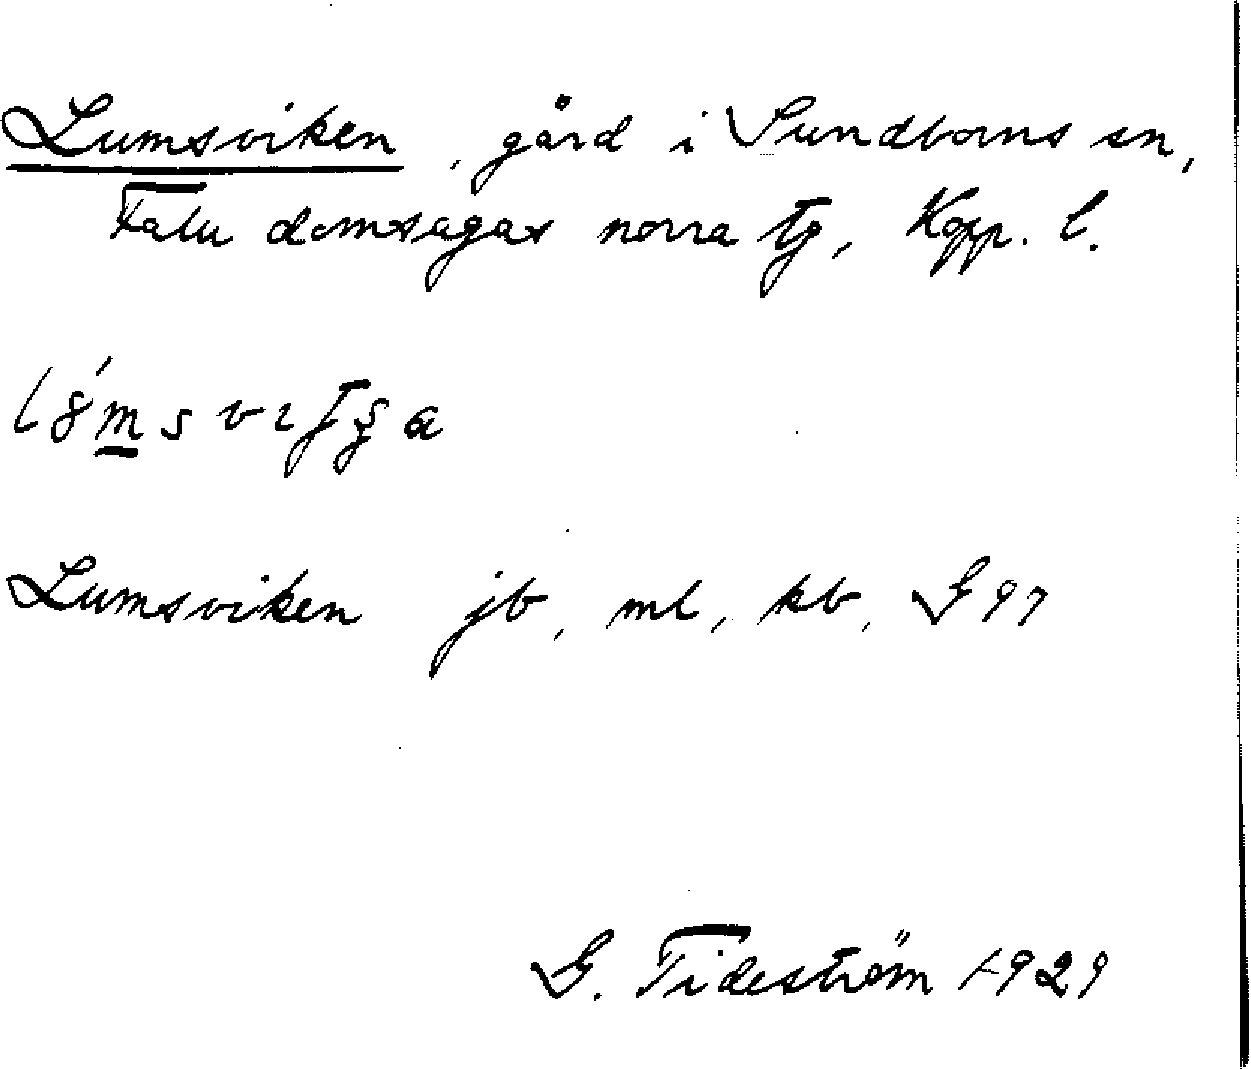 Lumsviken, gård i Sundborns sn,
Falu domsagas norra tg, Kopp. l.
Lumsviken jb, ml, kb, G 97
G. Tideström 1929